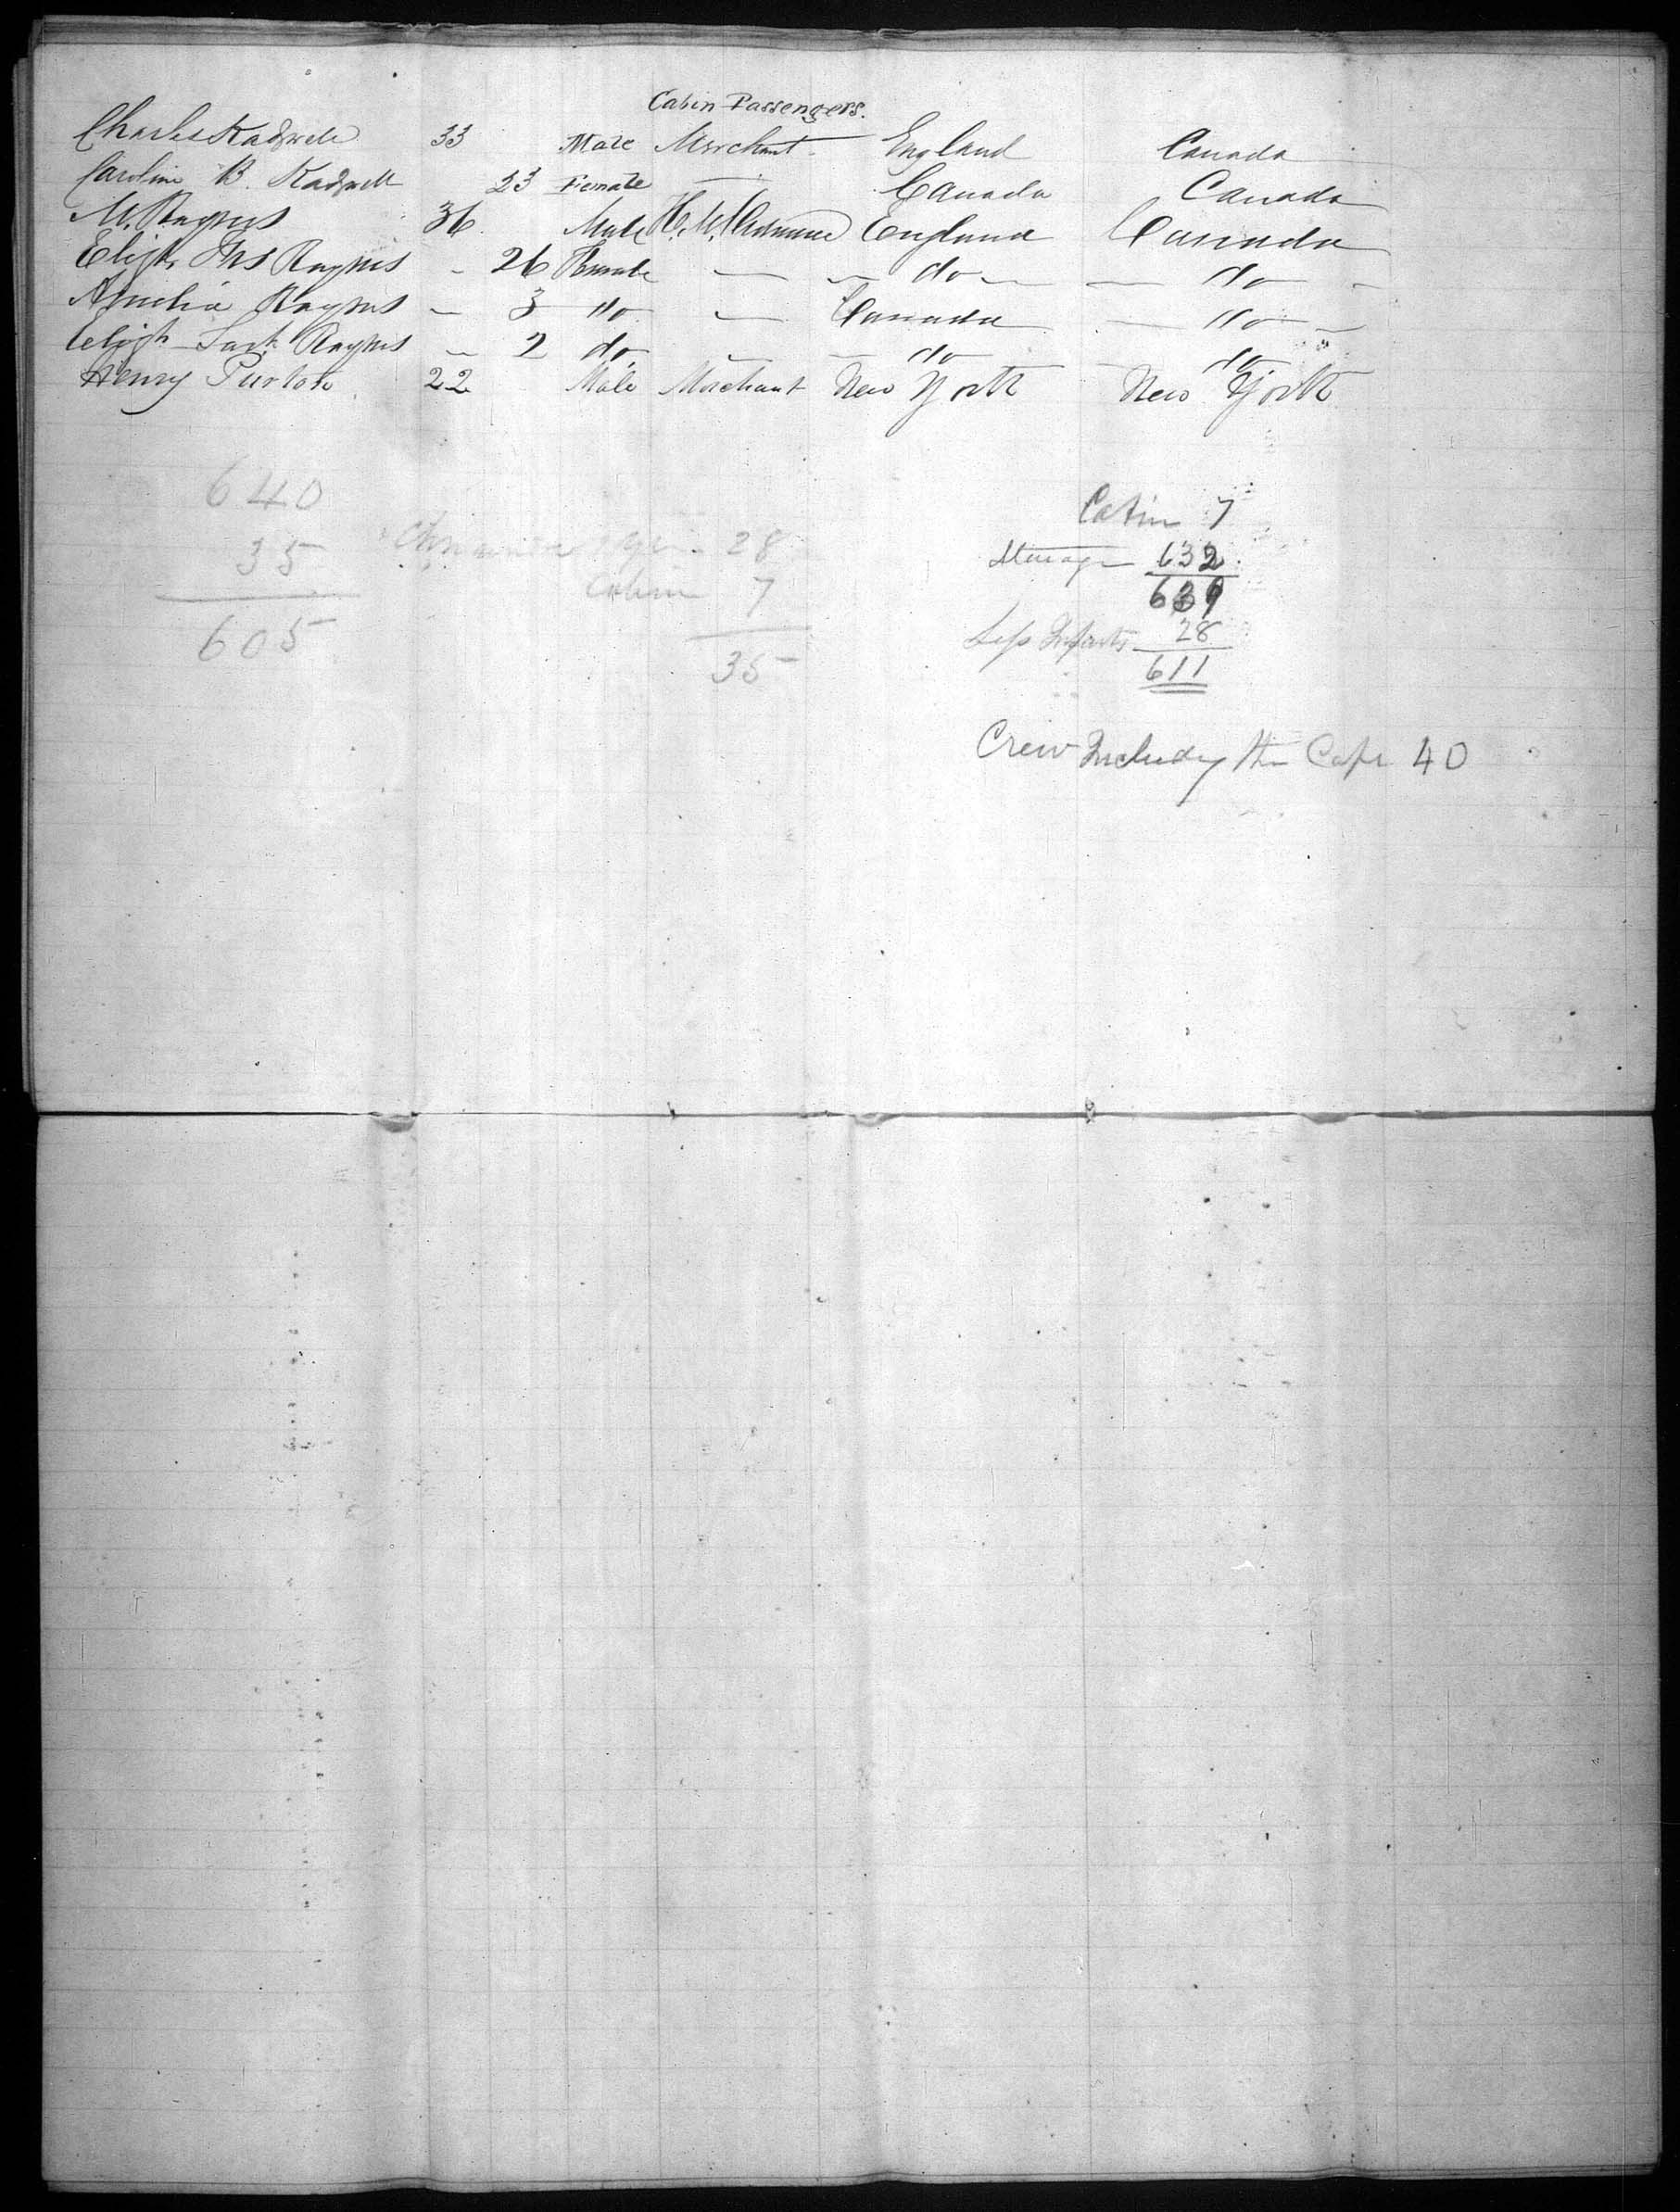 Cabin Passengers.
Charles Kadgwell 33 Male Merchant England Canada
Caroline B. Kadgwell 23 Female — Canada Canada
M. Raynes 36 Male England Canada
Elizth Raynes - 26 Female — — do — — do -
Amelia Raynes - 3 do — Canada — do —
Elizth Raynes - 2 do — — do — do
Henry Purton 22 Male Merchant New York New York
640
35
605
28
Cabin 7
35
Cabin 7
Steerage 632
639
Less Infants 28
611
Crew Including the Capt 40